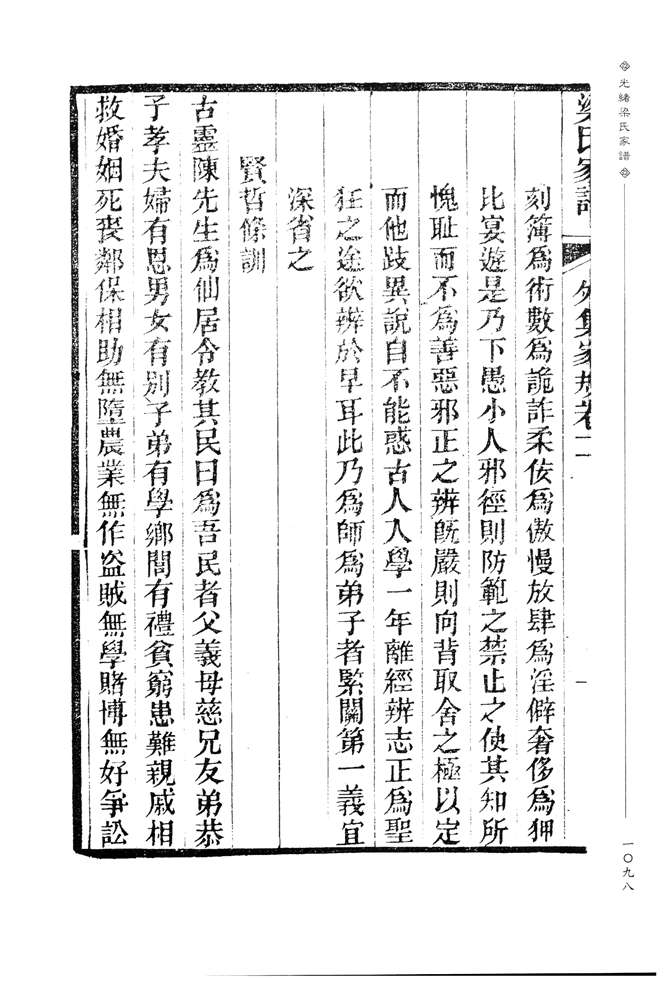 光緒梁氏家譜
一〇九八
梁氏家譜 外集家規卷二
刻簿爲術數爲詭詐柔佞爲傲慢放肆爲淫僻奢侈爲狎
比宴遊是乃下愚小人邪徑則防範之禁止之使其知所
愧耻而不爲善惡邪正之辨既嚴則向背取舍之極以定
而他歧異說自不能惑古人入學一年離經辨志正爲聖
狂之途欲辨於早耳此乃爲師爲弟子者緊關第一義宜
深省之
賢哲條訓
古靈陳先生爲仙居令教其民曰爲吾民者父義母慈兄友弟恭
子孝夫婦有恩男女有別子弟有學鄉閭有禮貧窮患難親戚相
救婚姻死喪鄰保相助無墮農業無作盜賊無學賭博無好爭訟